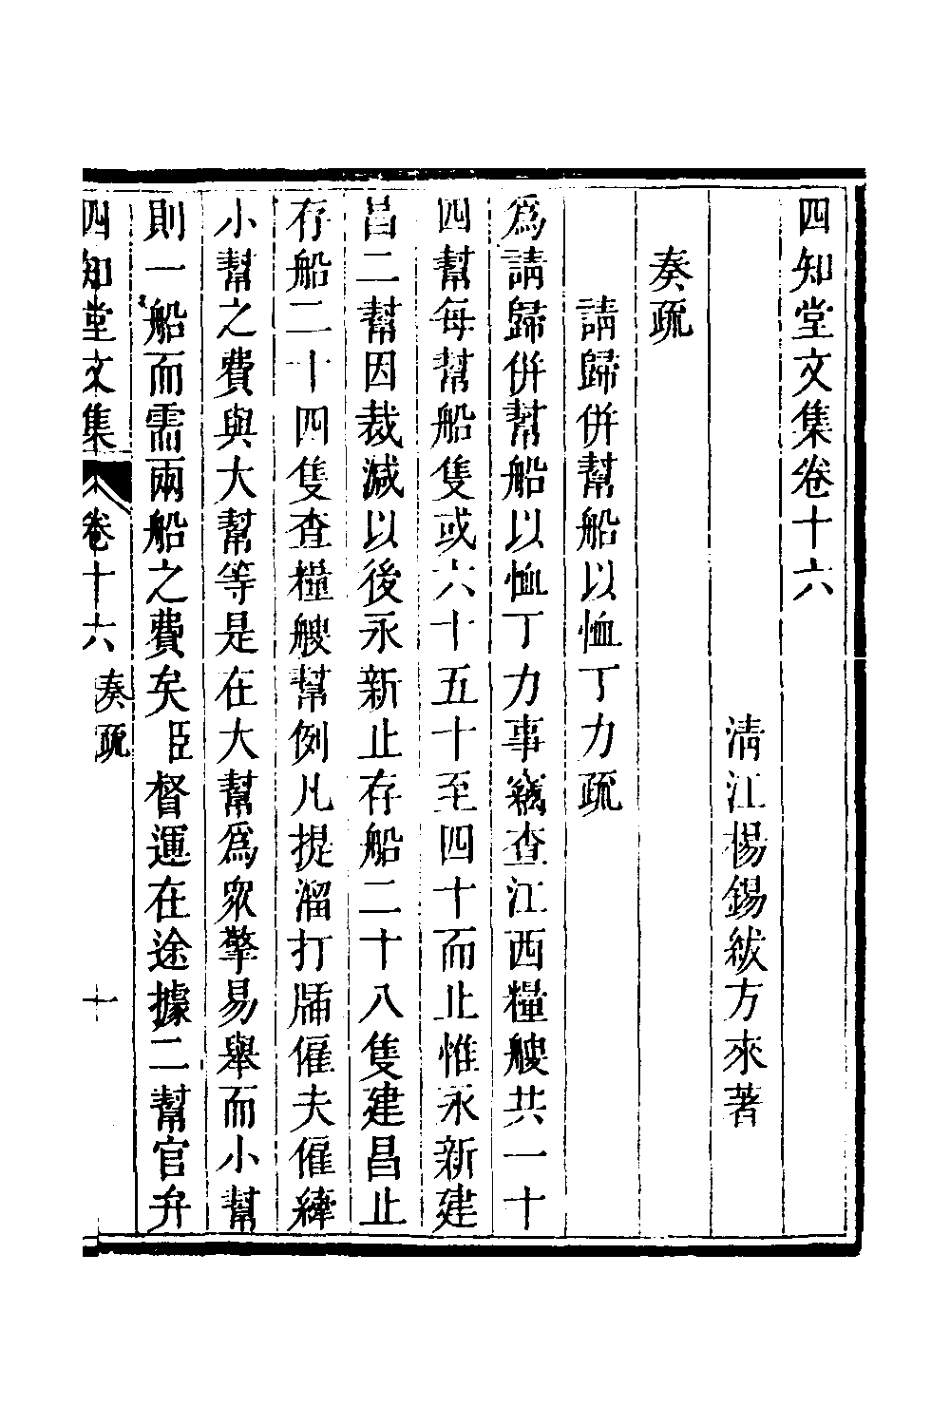 四知堂文集卷十六
清江楊錫紱方來著
奏疏
請歸併幫船以恤丁力疏
為請歸併幫船以恤丁力事竊查江西糧艘共一十
四幫每幫船隻或六十五十至四十而止惟永新建
昌二幫因裁減以後永新止存船二十八隻建昌止
存船二十四隻查糧艘幫例凡提溜打牐僱夫僱縴
小幫之費與大幫等是在大幫為衆擎易舉而小幫
則一船而需兩船之費矣臣督運在途據二幫官弁
四知堂文集 卷十六 奏疏 十